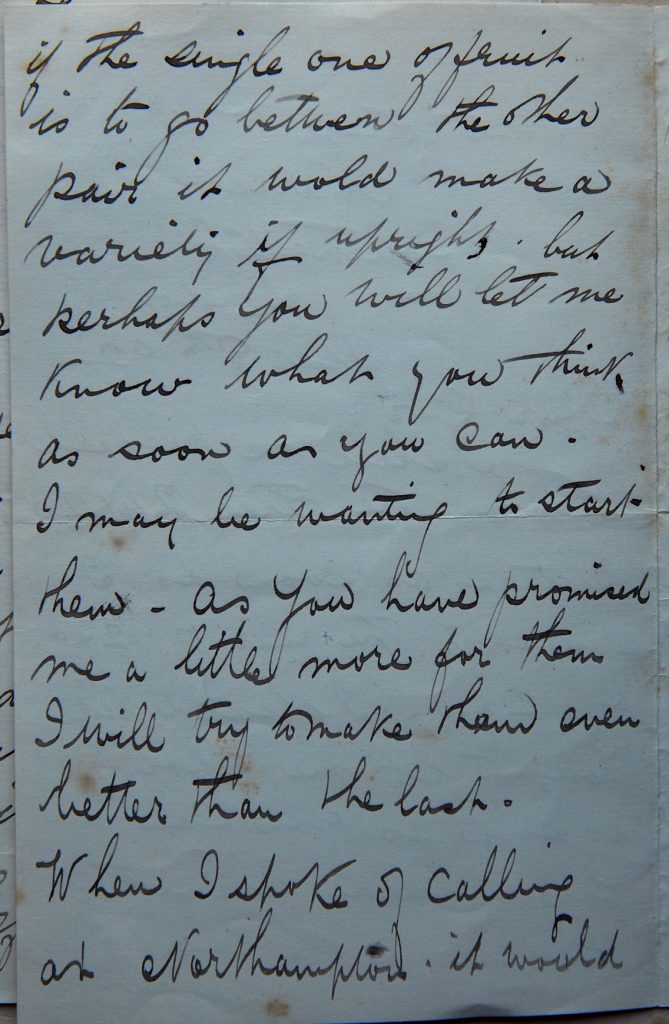 if the single one of fruit
is to go between the other
pair it wold make a
variety if upright, but
perhaps you will let me
know what you think
as soon as you can.
I may be wanting to start
them - as you have promised
me a little more for them
I will try to make them even
better than the last.
When I spoke of calling
at Northampton. it would